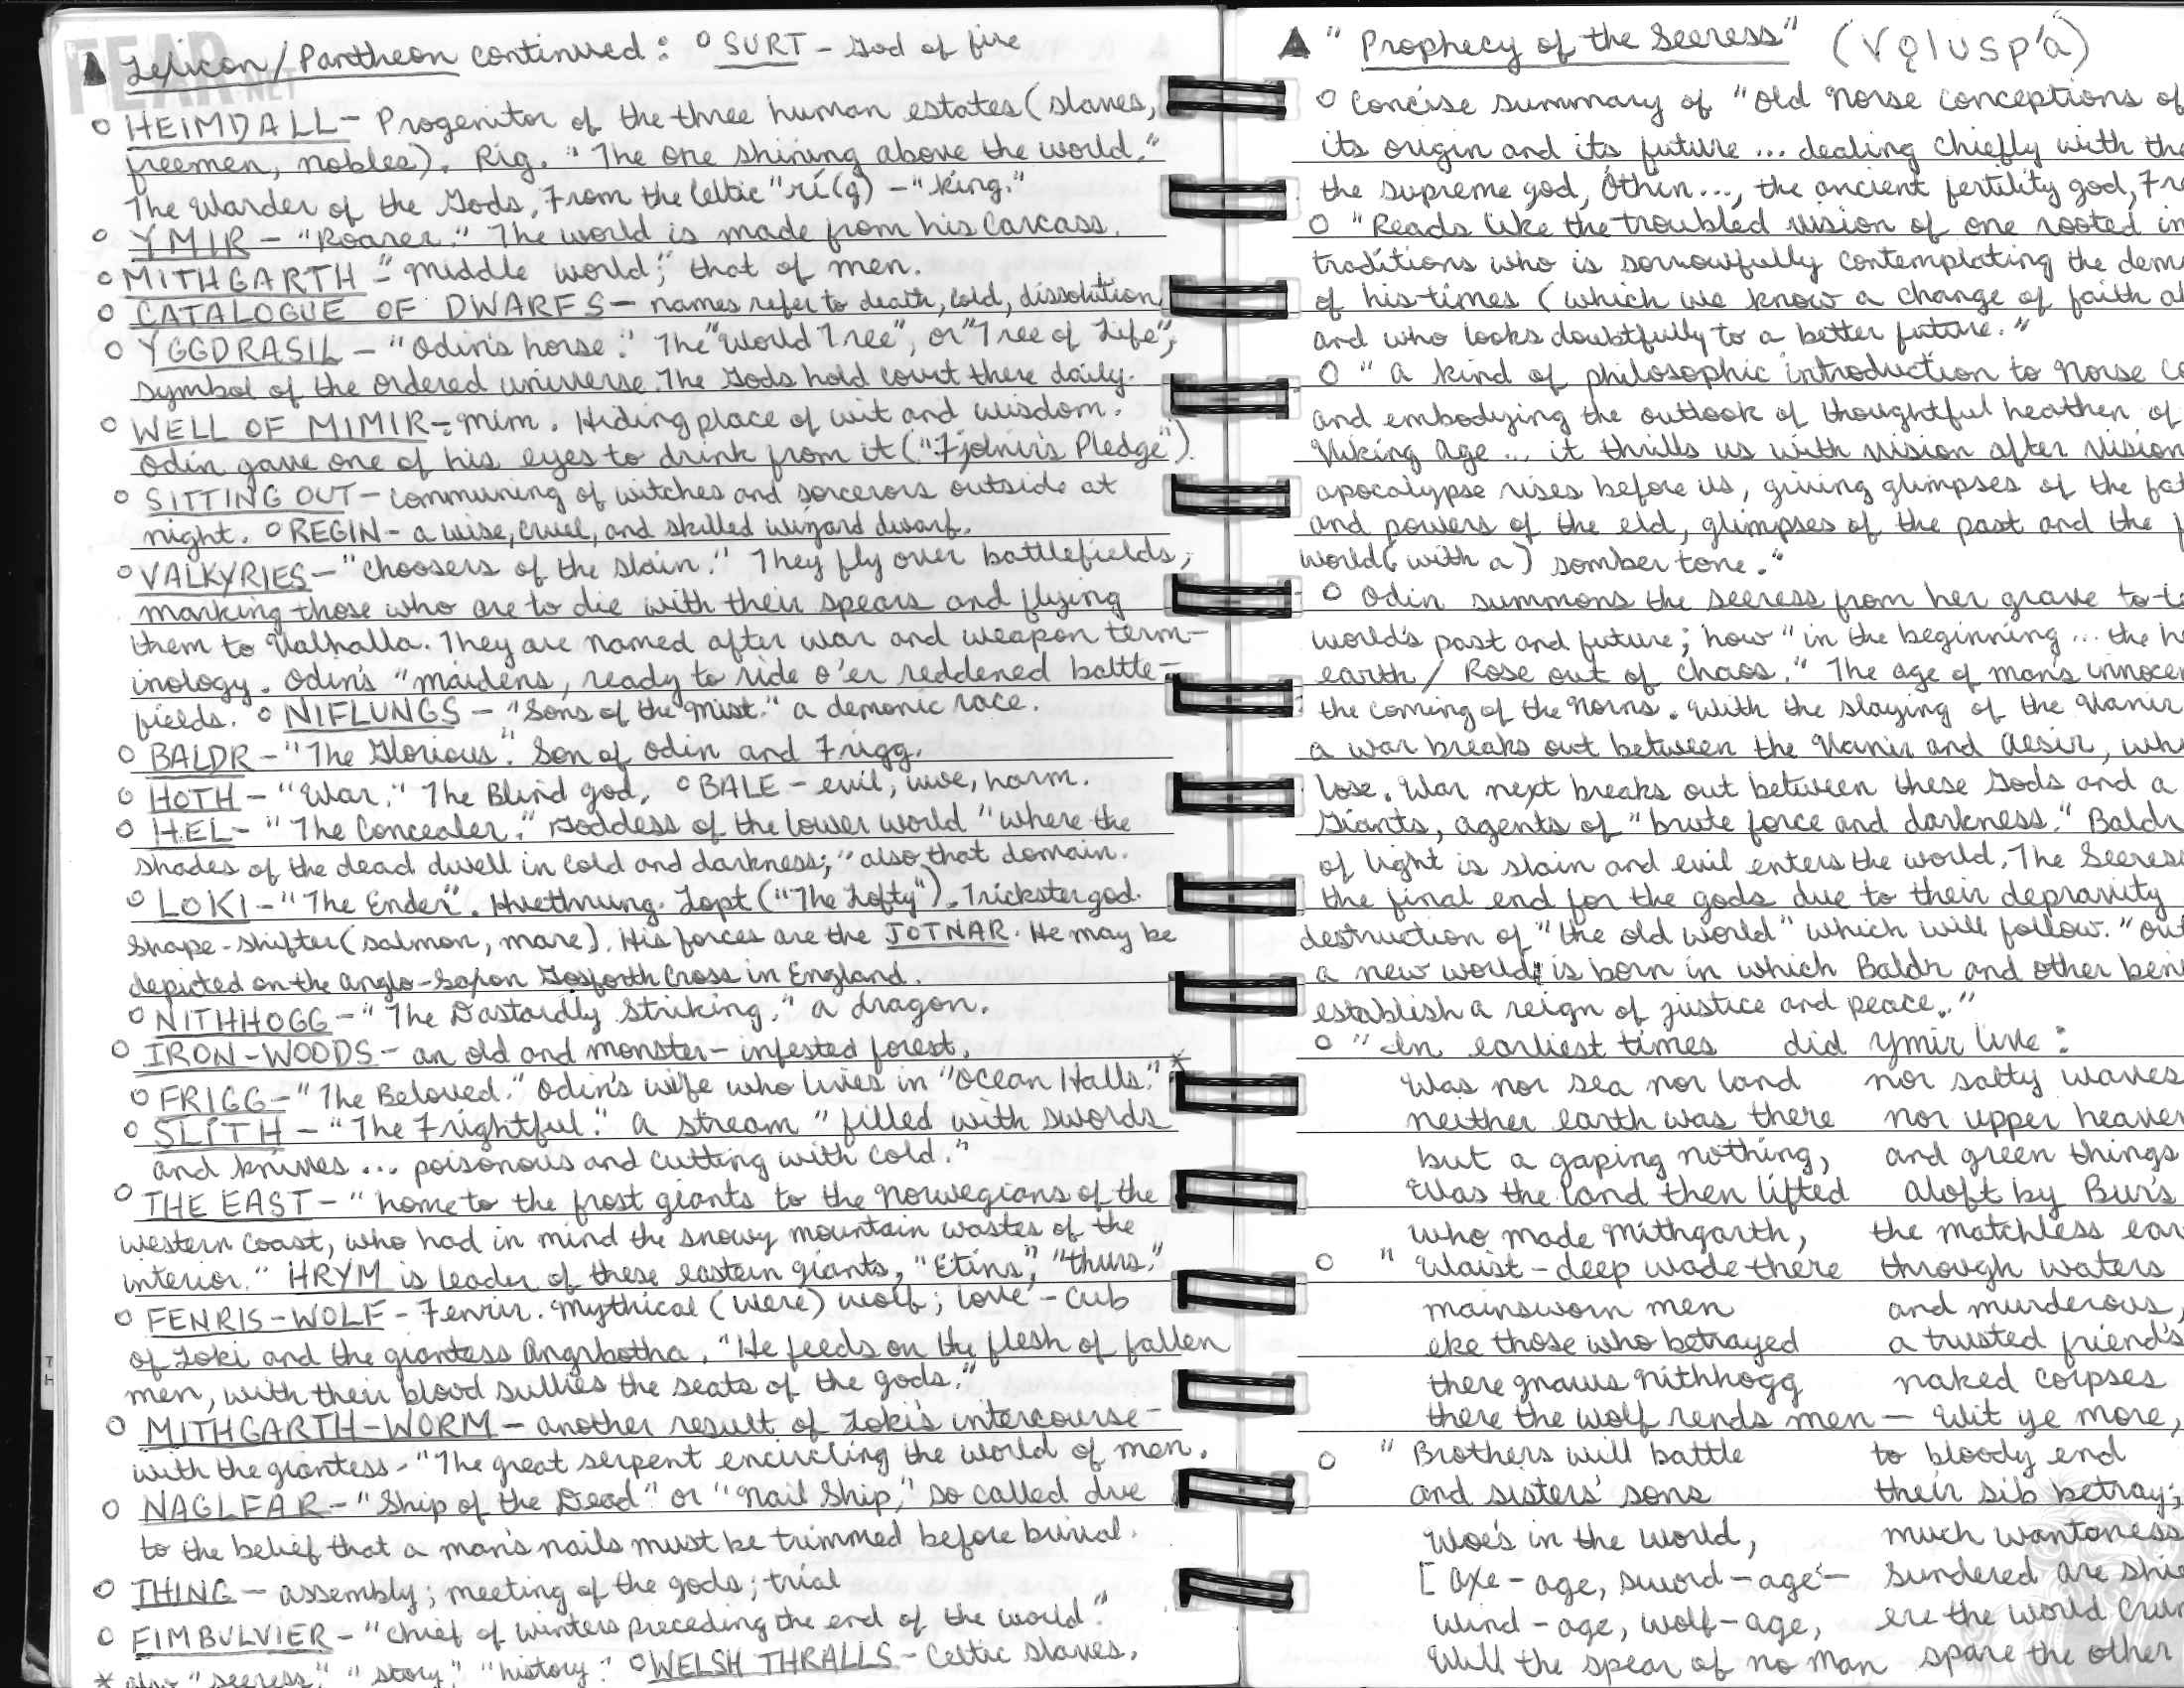 FEAR
.NET
Lexicon/Pantheon continued: o SURT - God of fire
o HEIMDALL - Progenitor of the three human estates (slaves,
freemen, nobles). Rig. "The one shining above the world."
The Warder of the Gods. From the Celtic "rí(g) - "king."
o YMIR - "Roarer." The world is made from his carcass.
o MITHGARTH - "middle world;" that of men.
o CATALOGUE OF DWARFS - names refer to death, cold, dissolution
o YGGDRASIL - "Odin's horse." The "World Tree", or "Tree of Life",
symbol of the ordered universe. The Gods hold court there daily.
o WELL OF MIMIR - mim. Hiding place of wit and wisdom.
Odin gave one of his eyes to drink from it ("Fjolnir's Pledge").
o SITTING OUT - communing of witches and sorcerors outside at
night. o REGIN - a wise, cruel, and skilled wizard dwarf.
o VALKYRIES - "choosers of the slain." They fly over battlefields,
marking those who are to die with their spears and flying
them to Valhalla. They are named after war and weapon term-
inology. Odin's "maidens, ready to ride o'er reddened battle-
fields. o NIFLUNGS - "Sons of the Mist." a demonic race.
o BALDR - "The Glorious". Son of Odin and Frigg.
o HOTH - "War." The Blind god. o BALE - evil, woe, harm.
o HEL - "The Concealer." Goddess of the lower world "where the
shades of the dead dwell in cold and darkness;" also that domain.
o LOKI - "The Ender". Hvethrung. Lopt ("The Lofty"). Trickster god.
Shape-shifter (salmon, mare). His forces are the JOTNAR. He may be
depicted on the Anglo-Saxon Gosforth Cross in England.
o NITHHOGG - "The Dastardly Striking." a dragon.
o IRON-WOODS - an old and monster-infested forest.
o FRIGG - "The Beloved." Odin's wife who lives in "Ocean Halls." *
o SLITH - "The Frightful." A stream "filled with swords
and knives ... poisonous and cutting with cold."
o THE EAST - "home to the frost giants to the Norwegians of the
western coast, who had in mind the snowy mountain wastes of the
interior." HRYM is leader of these eastern giants, "Etins," "thurs."
o FENRIS-WOLF - Fenrir. Mythical (were) wolf; love-cub
of Loki and the giantess Angrbotha. "He feeds on the flesh of fallen
men, with their blood sullies the seats of the gods."
o MITHGARTH-WORM - another result of Loki's intercourse -
with the giantess - "The great serpent encircling the world of men.
o NAGLFAR - "Ship of the Dead" or "Nail Ship," so called due
to the belief that a man's nails must be trimmed before burial.
o THING - assembly; meeting of the gods; trial
o FIMBULVIER - "chief of winters preceding the end of the world."
* also "seeress," "story," "history." o WELSH THRALLS - Celtic slaves.
"Prophecy of the Seeress" (Vǫluspá)
o Concise summary of "Old Norse conceptions of
its origin and its future ... dealing chiefly with the
the supreme god, Óthin..., the ancient fertility god,
o "Reads like the troubled vision of one rooted in
traditions who is sorrowfully contemplating the
of his times (which we know a change of faith
and who looks doubtfully to a better future."
o "a kind of philosophic introduction to Norse
and embodying the outlook of thoughtful heathen of
Viking Age ... it thrills us with vision after vision
apocalypse rises before us, giving glimpses of the
and powers of the eld, glimpses of the past and the
world (with a) somber tone."
o Odin summons the seeress from her grave to
world's past and future; how "in the beginning ... the
earth / Rose out of chaos." The age of man's
the coming of the Norns. With the slaying of the Vanir
a war breaks out between the Vanir and Aesir,
lose. War next breaks out between these Gods and a
Giants, agents of "brute force and darkness." Baldr
of light is slain and evil enters the world. The Seeress
the final end for the gods due to their depravity
destruction of "the old world" which will follow. "Out
a new world; is born in which Baldr and other
establish a reign of justice and peace."
o "In earliest times did Ymir live:
Was nor sea nor land nor salty waves
neither earth was there nor upper heaven
but a gaping nothing, and green things
Was the land then lifted aloft by Bur's
who made Mithgarth, the matchless
o "Waist-deep wade there through waters
mainsworn men and murderous,
eke those who betrayed a trusted friend's
there gnaws Nithhogg naked corpses
there the wolf rends men - Wit ye more,
o "Brothers will battle to bloody end
and sisters' sons their sib betray;
Woe's in the world, much wantoness
[axe-age, sword-age - sundered are
wind-age, wolf-age, ere the world
Will the spear of no man spare the other